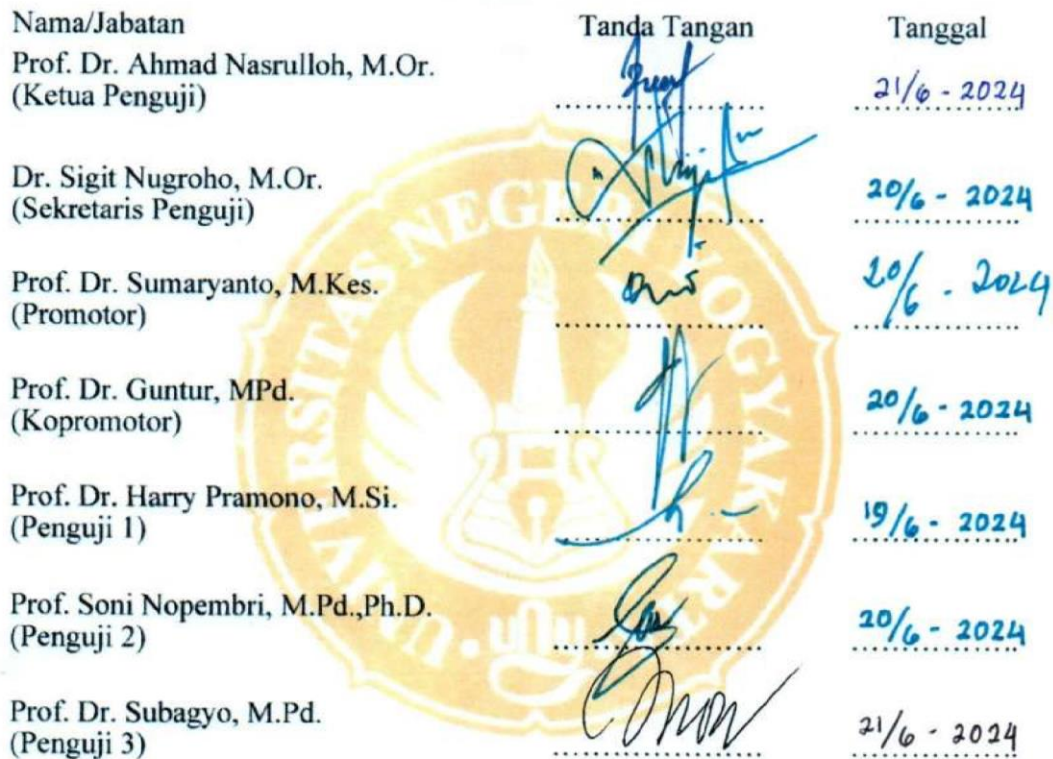 Nama/Jabatan Tanda Tangan Tanggal
Prof. Dr. Ahmad Nasrulloh, M.Or.
(Ketua Penguji) 21/6 - 2024
Dr. Sigit Nugroho, M.Or.
(Sekretaris Penguji) 20/6 - 2024
Prof. Dr. Sumaryanto, M.Kes.
(Promotor) 20/6 - 2024
Prof. Dr. Guntur, MPd.
(Kopromotor) 20/6 - 2024
Prof. Dr. Harry Pramono, M.Si.
(Penguji 1) 19/6 - 2024
Prof. Soni Nopembri, M.Pd.,Ph.D.
(Penguji 2) 20/6 - 2024
Prof. Dr. Subagyo, M.Pd.
(Penguji 3) 21/6 - 2024
UNIVERSITAS NEGERI YOGYAKARTA